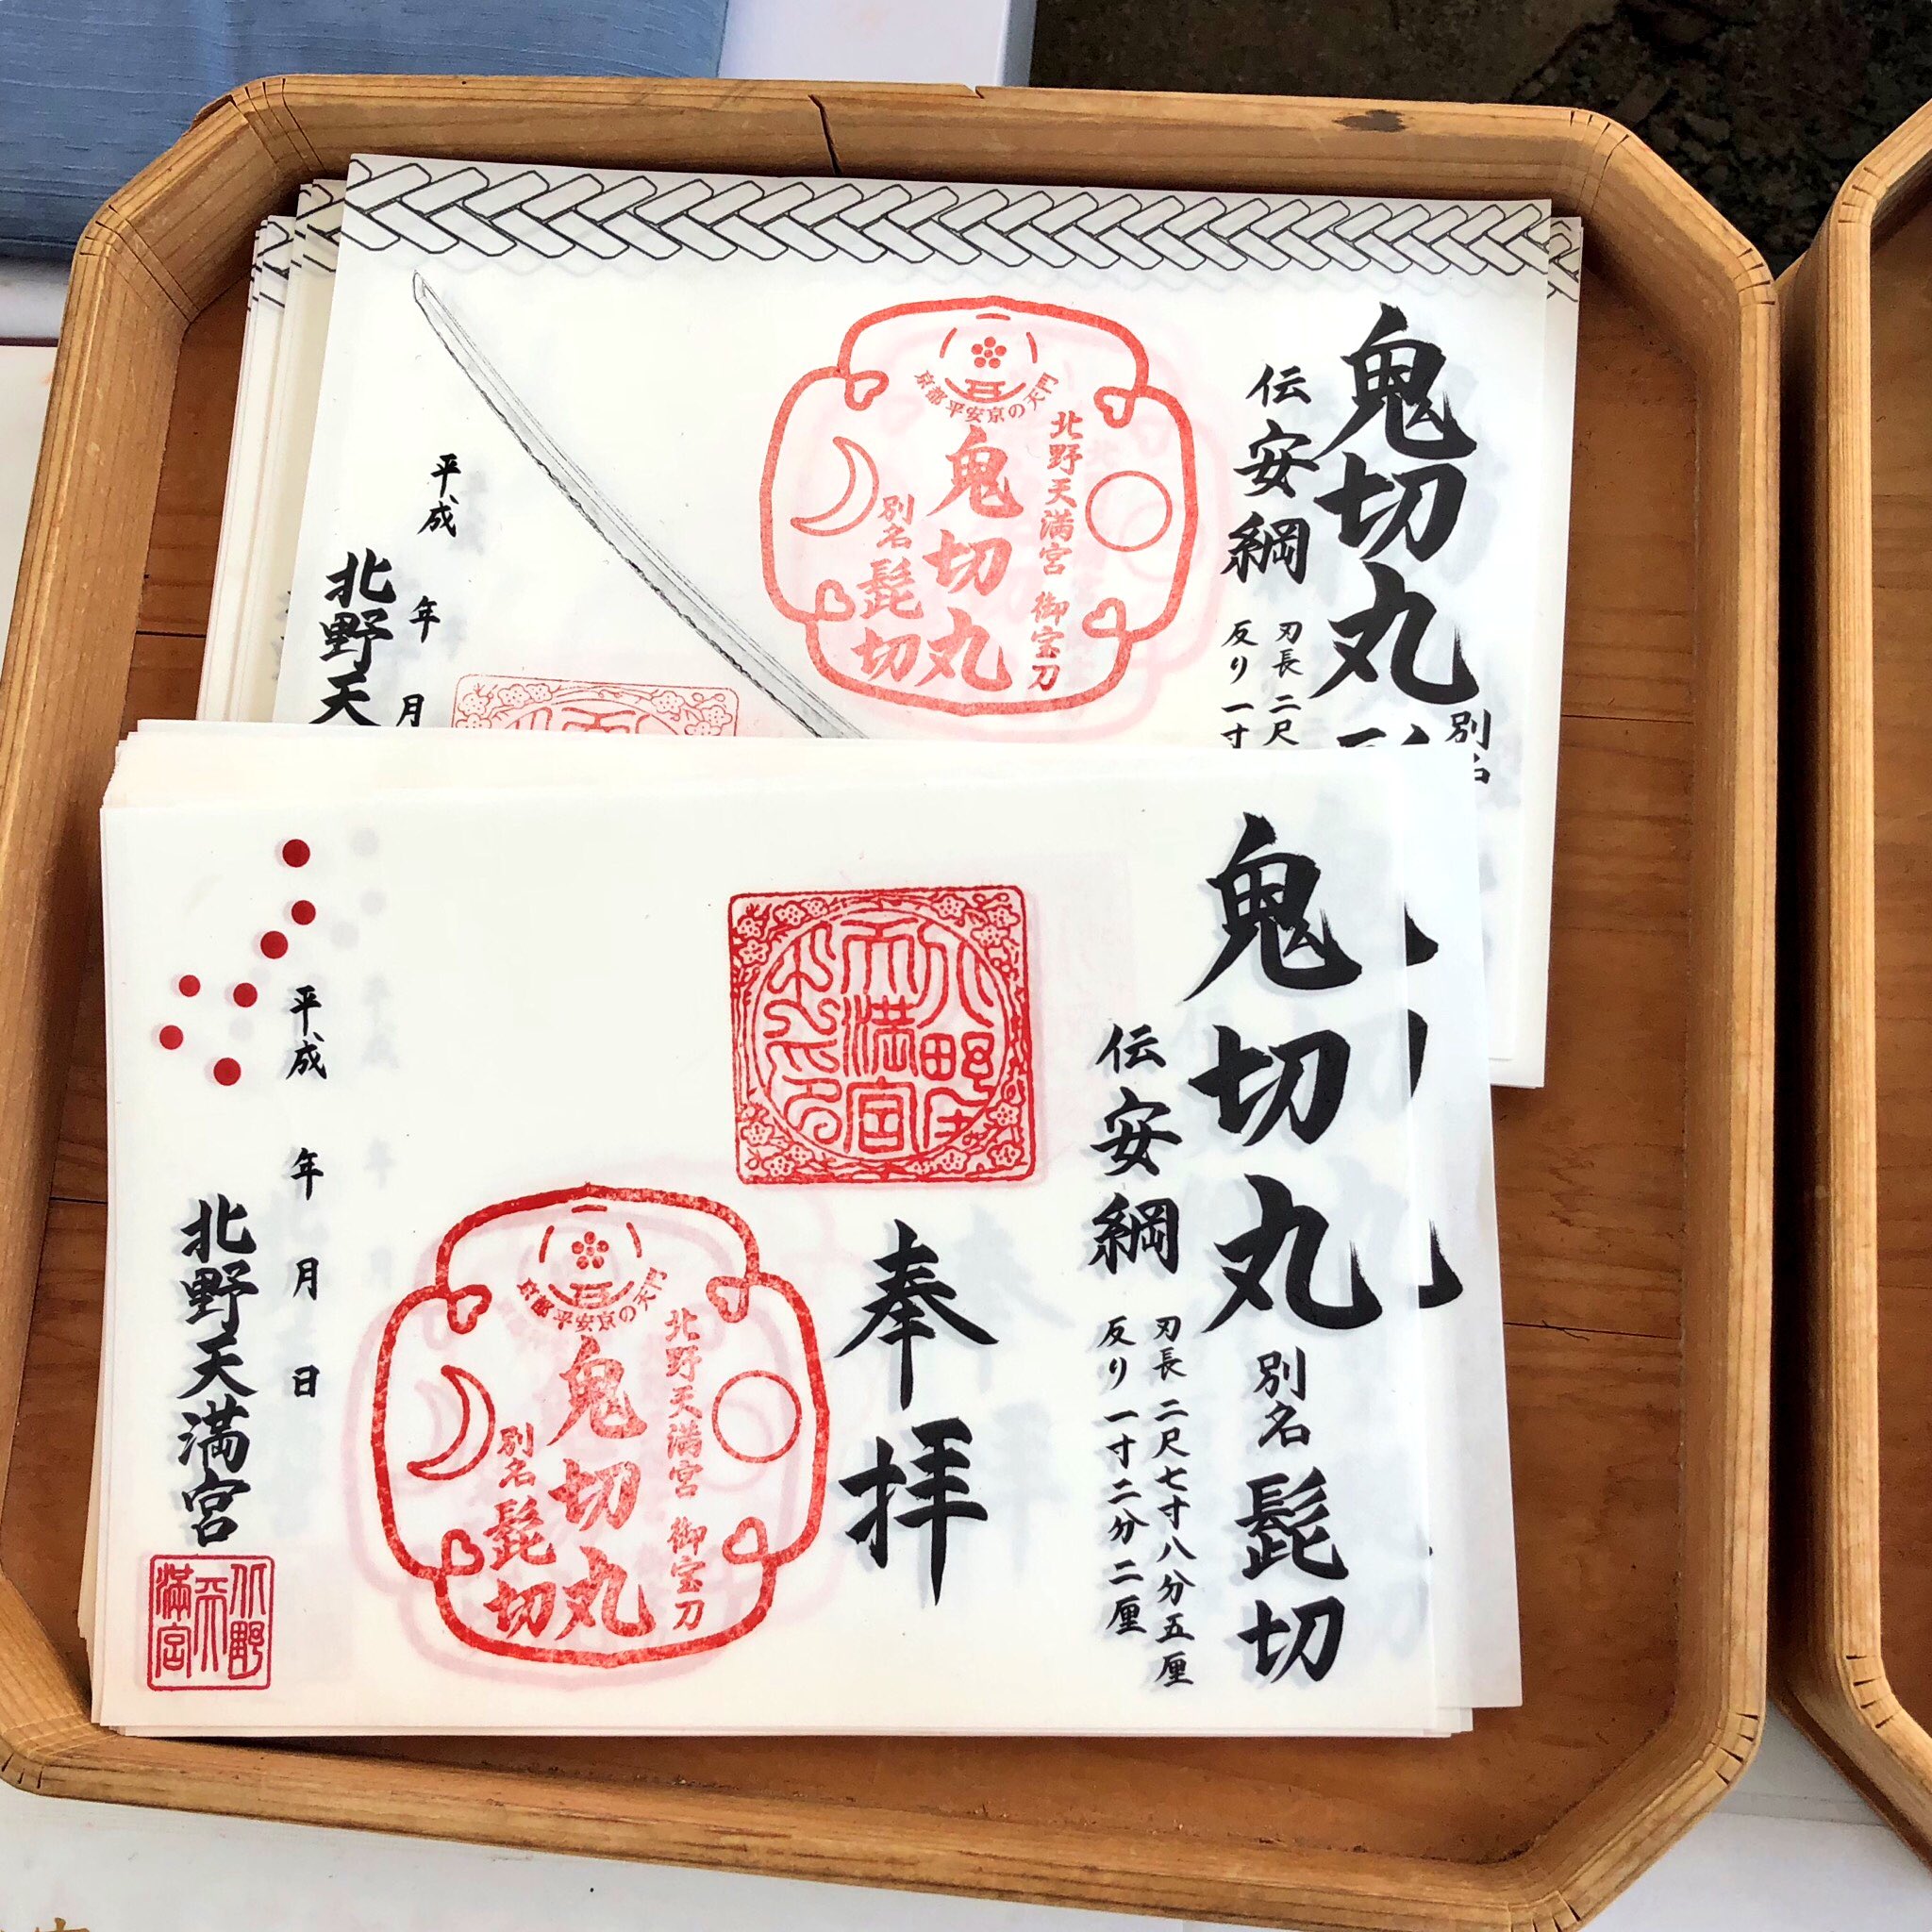 鬼切丸 別名
伝安綱
刃長 二尺
反り 一寸
京都 平安京の天門
北野天満宮 御宝刀
鬼切丸
別名 髭切
平成 年 月
北野天
鬼切丸 別名 髭切
伝安綱
刃長 二尺七寸八分五厘
反り 一寸二分二厘
奉拝
京都 平安京の天門
北野天満宮 御宝刀
鬼切丸
別名 髭切
平成 年 月 日
北野天満宮
北野
天
満宮